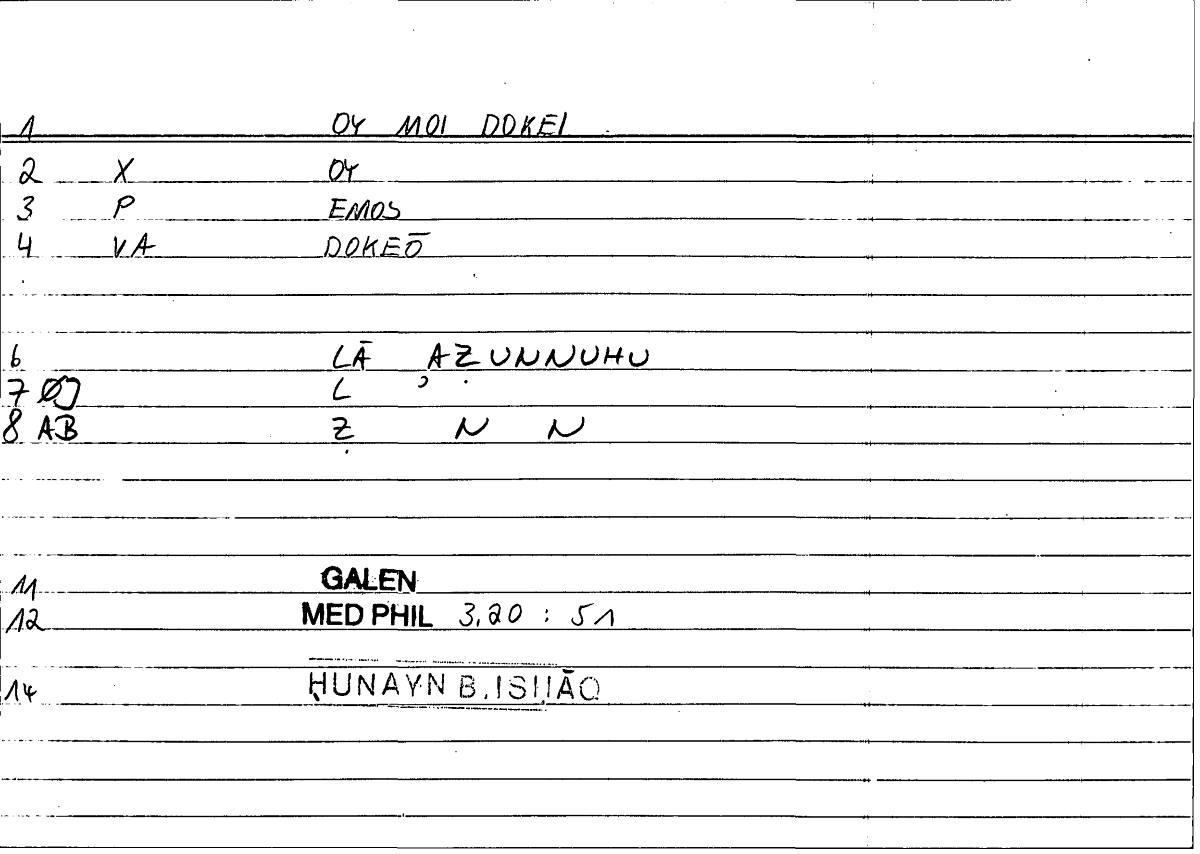 1 OY MOI DOKEI
2 X OY
3 P EMOS
4 VA DOKEŌ
6 LĀ ʾAẒUNNUHU
7 ØJ L ʾ
8 AB Ẓ N N
11 GALEN
12 MED PHIL 3,20 : 51
14 ḤUNAYN B. ISḤĀQ